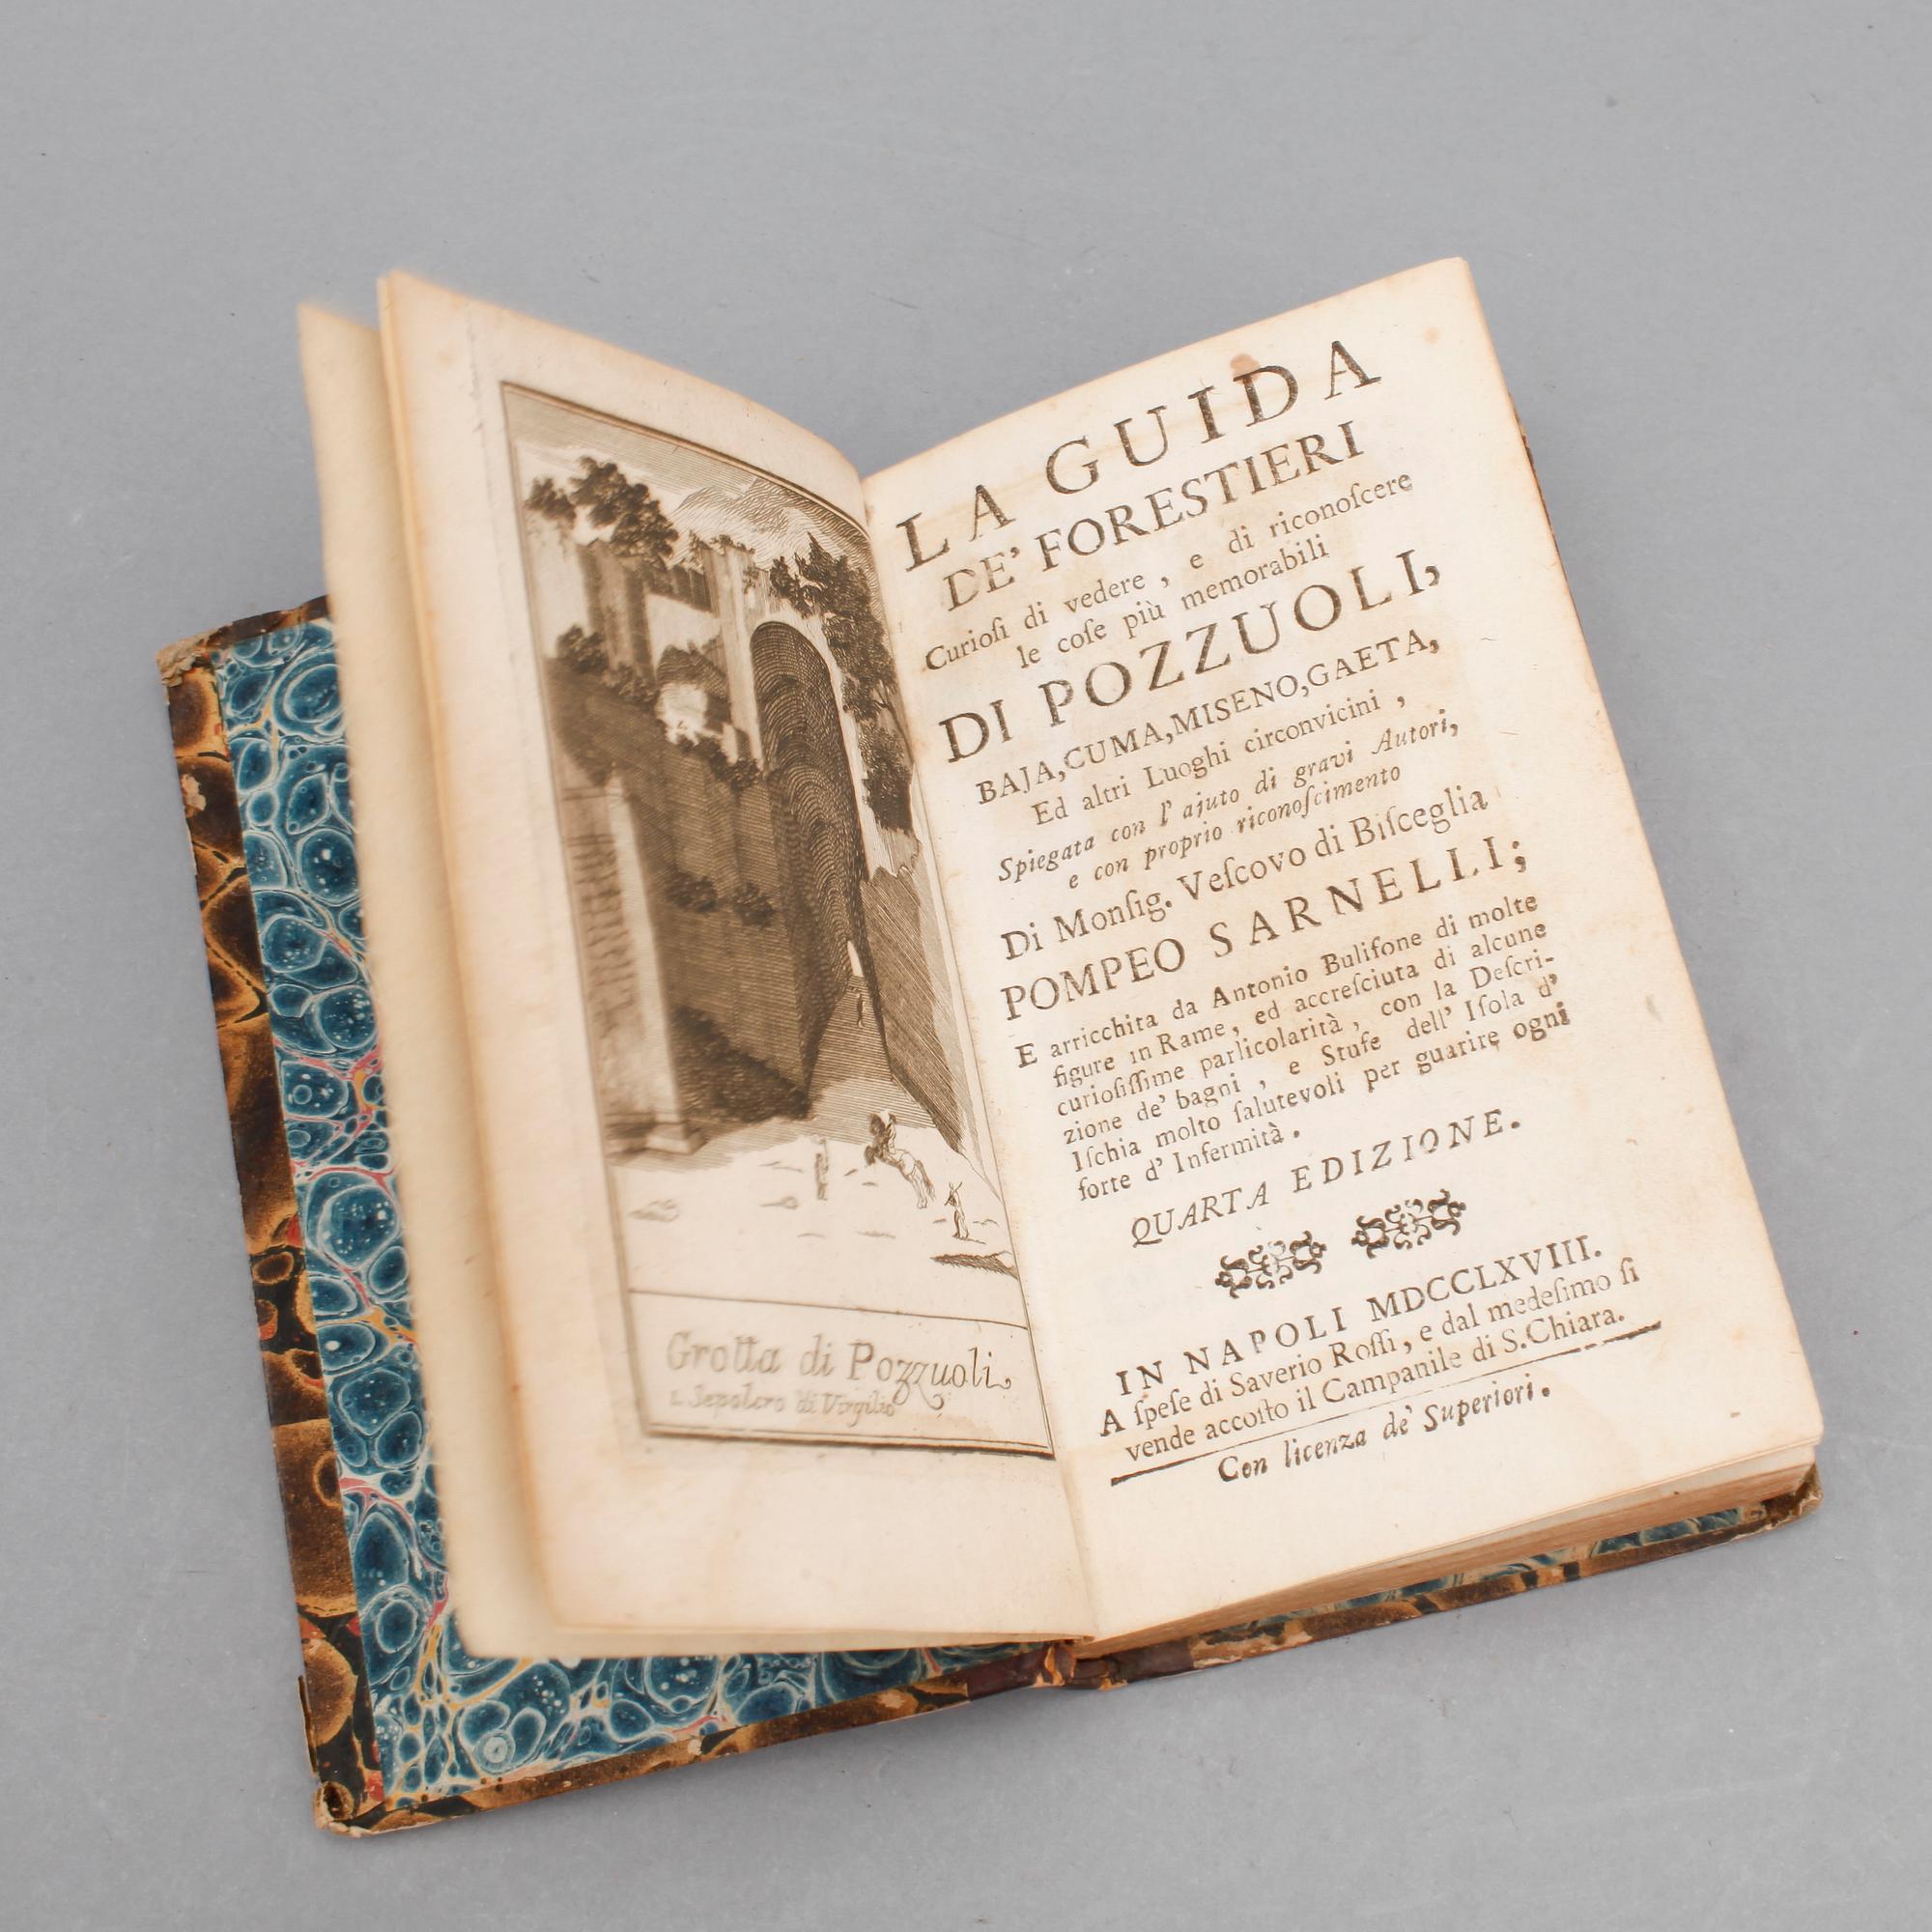 Grotta di Pozzuoli
1. Sepolcro di Virgilio
LA GUIDA
DE' FORESTIERI
Curioſi di vedere, e di riconoſcere
le coſe più memorabili
DI POZZUOLI,
BAJA, CUMA, MISENO, GAETA,
Ed altri Luoghi circonvicini,
Spiegata con l'ajuto di gravi Autori,
e con proprio riconoſcimento
Di Monſig. Veſcovo di Biſceglia
POMPEO SARNELLI;
E arricchita da Antonio Bulifone di molte
figure in Rame, ed accreſciuta di alcune
curioſiſſime parlicolarità, con la Deſcri-
zione de' bagni, e Stufe dell' Iſola d'
Iſchia molto ſalutevoli per guarire ogni
ſorte d' Infermità.
QUARTA EDIZIONE.
IN NAPOLI MDCCLXVIII.
A ſpeſe di Saverio Roſſi, e dal medeſimo ſi
vende accoſto il Campanile di S. Chiara.
Con licenza de' Superiori.